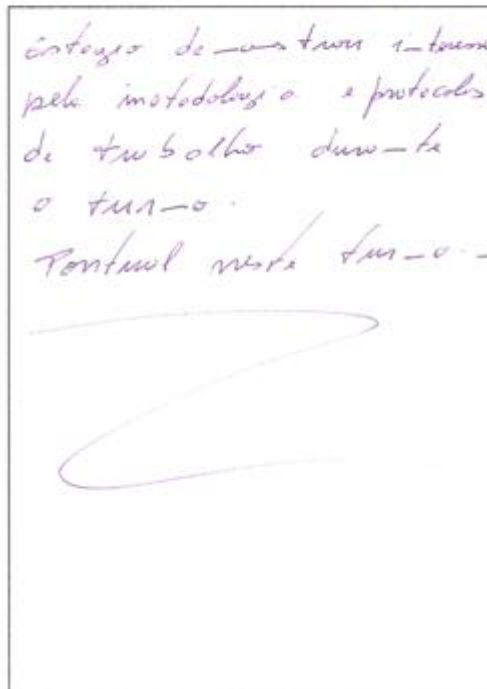 estagio demonstrou interesse
pela metodologia e protocolos
de trabalho durante
o turno.
Pontual neste turno.